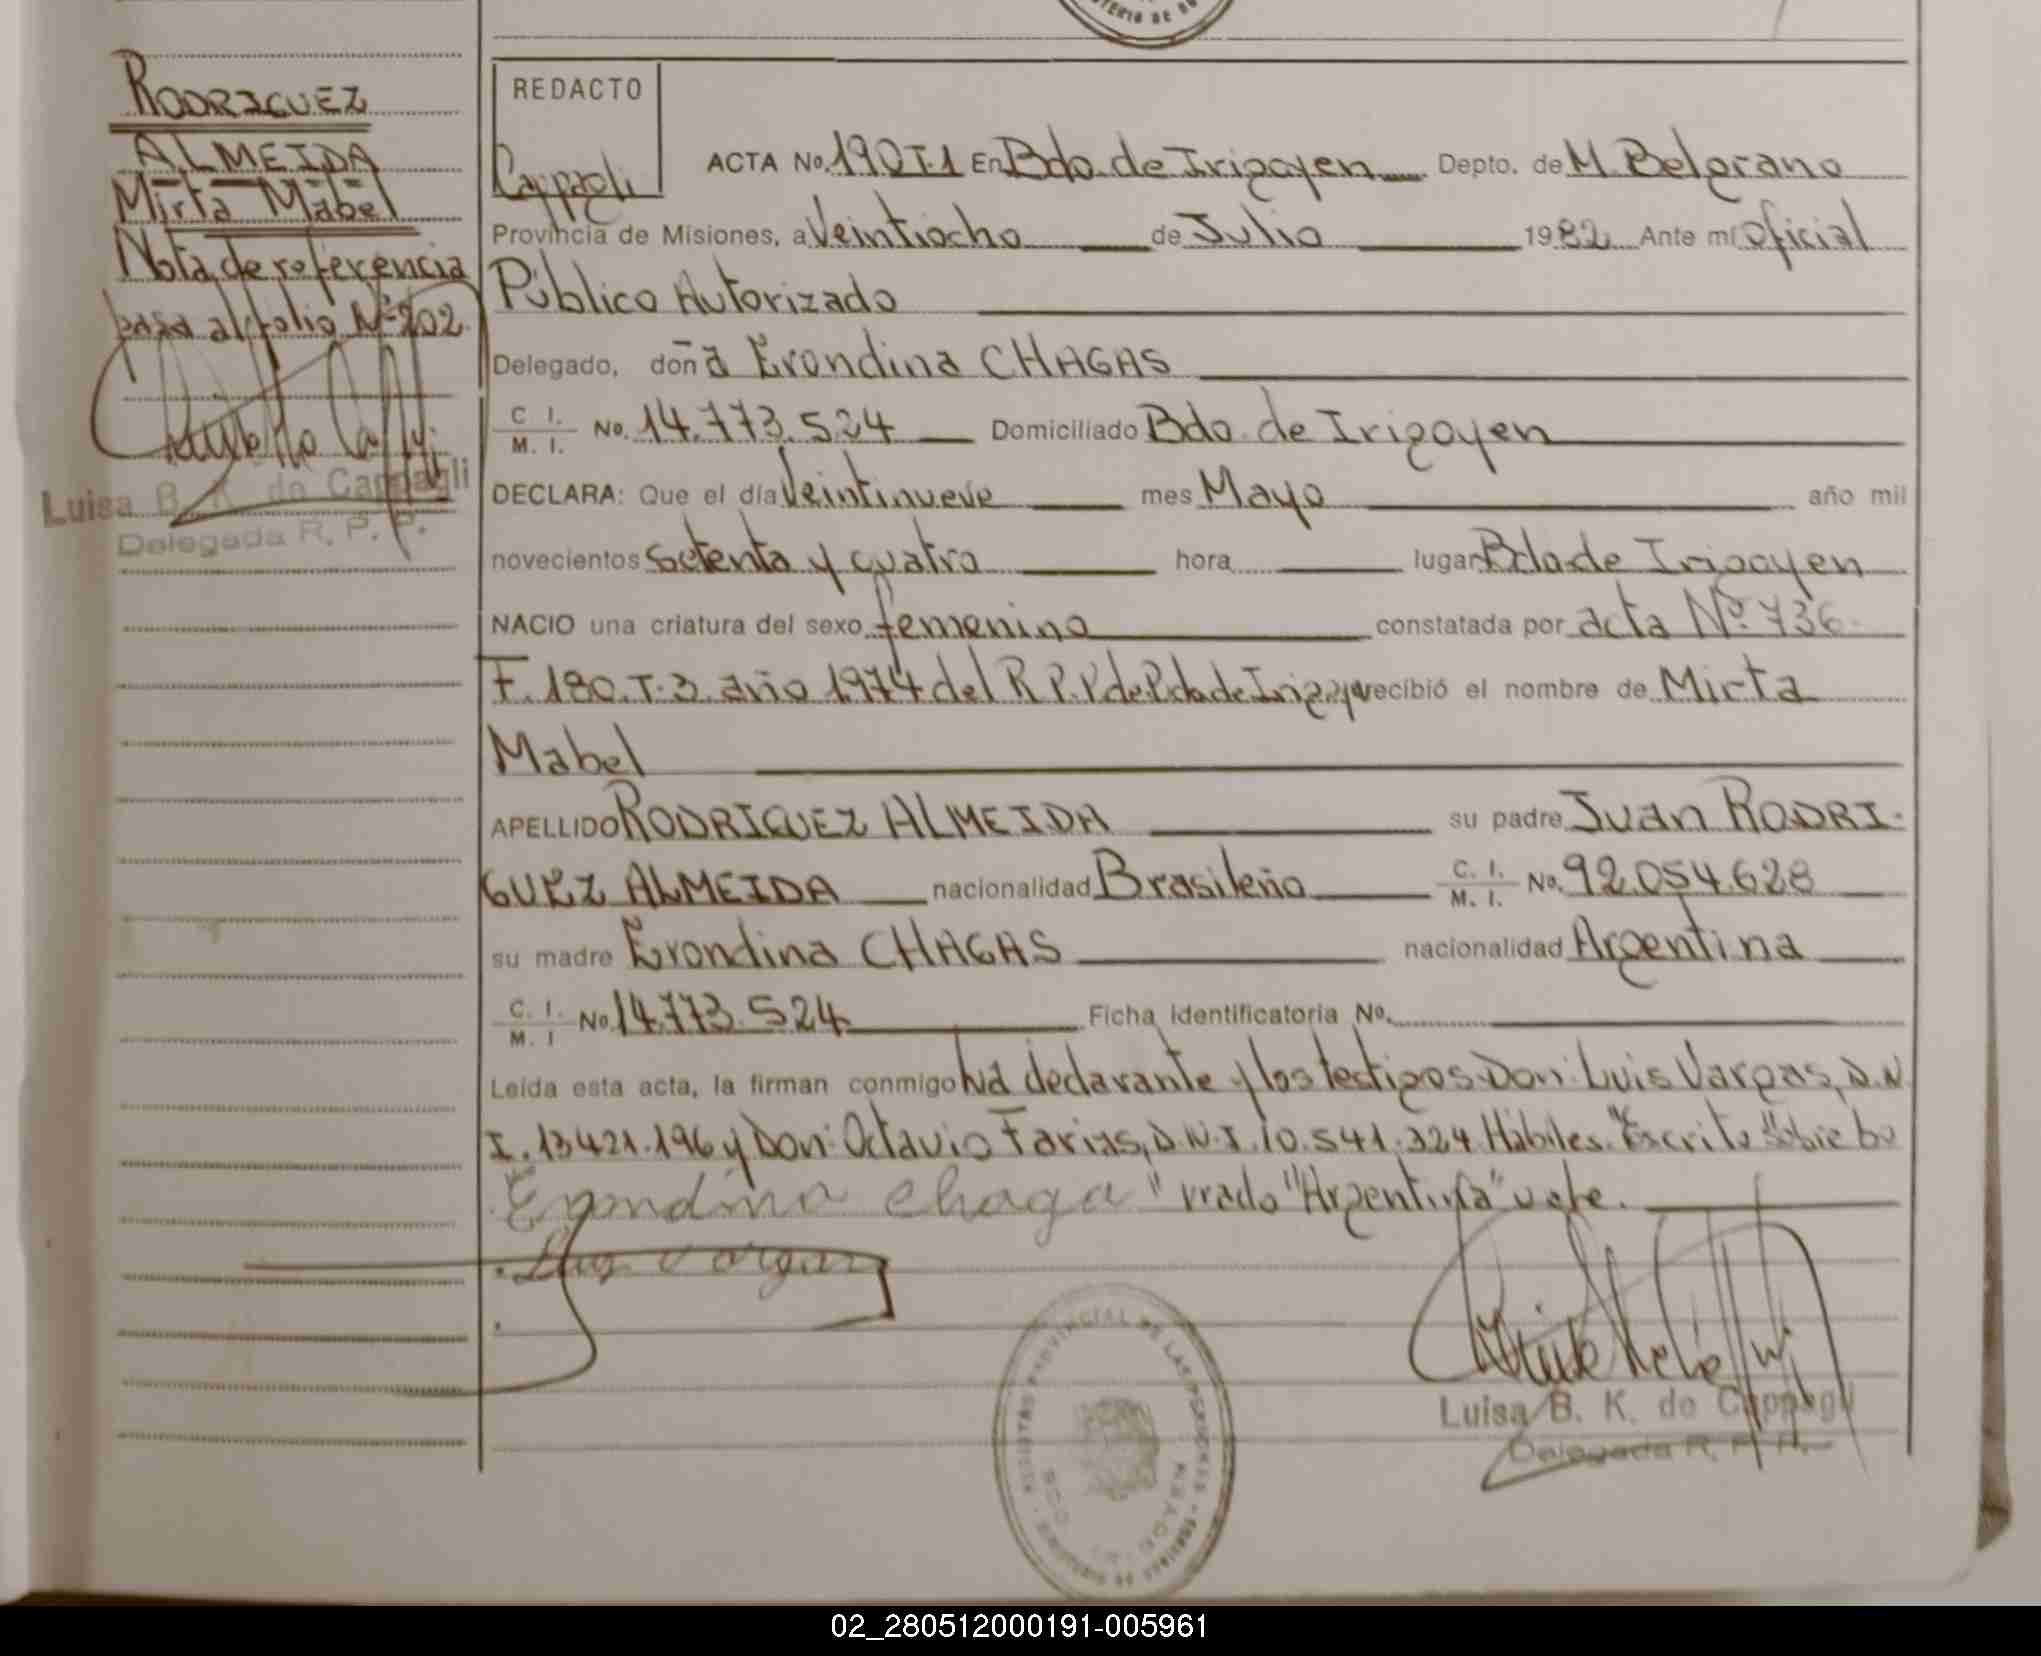 RODRIGUEZ
ALMEIDA
Mirta Mabel
Nota de referencia
pasa al folio Nº 202
Luisa B. K. de Cappagli
Delegada R. P. P.
REDACTO
Cappagli
ACTA No. 190 T.1 En Bdo. de Irigoyen Depto. de M. Belgrano
Provincia de Misiones, a Veintiocho de Julio 1982 Ante mí Oficial
Público Autorizado
Delegado, doña Erondina CHAGAS
C I. M. I. No. 14.773.524 Domiciliado Bdo. de Irigoyen
DECLARA: Que el día Veintinueve mes Mayo año mil
novecientos setenta y cuatro hora lugar Bdo de Irigoyen
NACIO una criatura del sexo femenino constatada por acta Nº 736
F. 180. T. 3. año 1974 del R. P. P. de Bdo de Irigoyen recibió el nombre de Mirta
Mabel
APELLIDO RODRIGUEZ ALMEIDA su padre Juan RODRI-
GUEZ ALMEIDA nacionalidad Brasileño C. I. M. I. No. 92.054.628
su madre Erondina CHAGAS nacionalidad Argentina
C. I. M. I No 14.773.524 Ficha identificatoria No.
Leída esta acta, la firman conmigo la declarante y los testigos Don: Luis Vargas, D. N.
I. 13421.196 y Don: Octavio Farias, D. N. I. 10.541.324 Hábiles. "Escrito "Sobre bo
Erondina chaga "rrado "Argentina" vale.
Luis Vargas
Luisa B. K. de Cappagli
Delegada R. P. P.
02_280512000191-005961